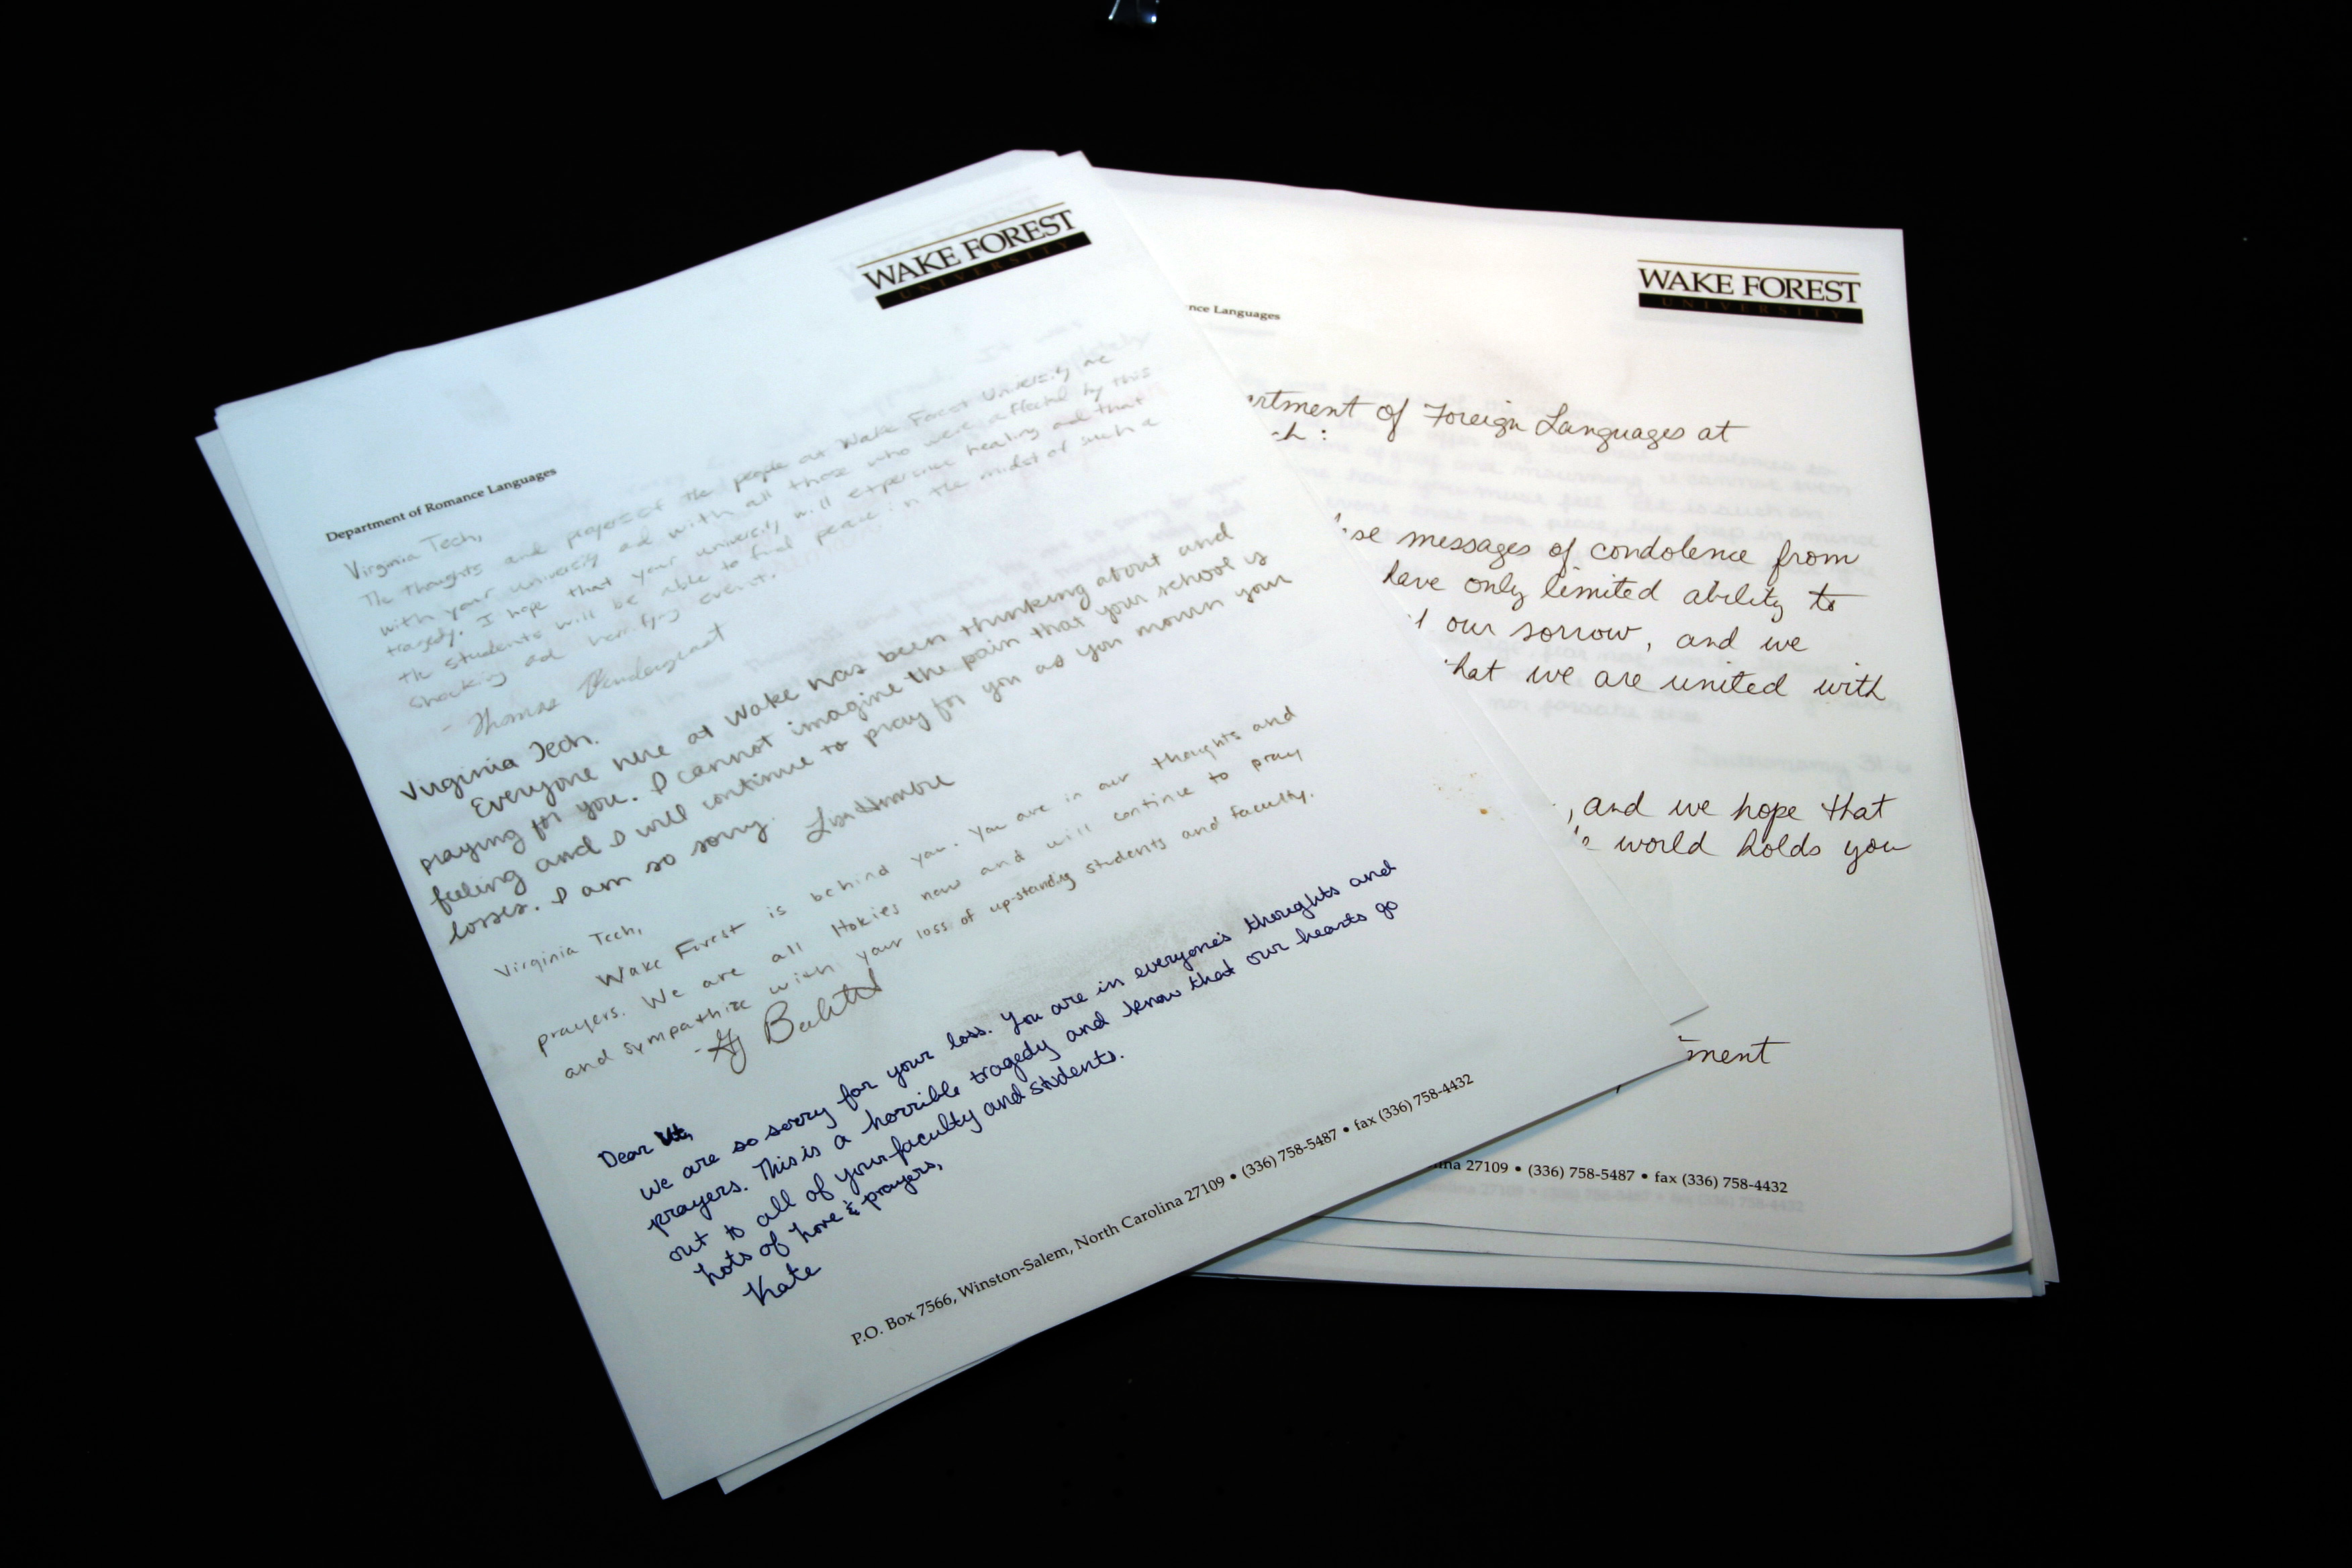 WAKE FOREST
UNIVERSITY
Department of Romance Languages
Virginia Tech,
The thoughts and prayers of the people at Wake Forest University are
with your university ad with all those who were affected by this
tragedy. I hope that your university will experience healing ad that
the students will be able to find peace in the midst of such a
shocking ad horrifying event.
- Thomas Pendergrast
Virginia Tech.
Everyone here at Wake has been thinking about and
praying for you. I cannot imagine the pain that your school is
feeling and I will continue to pray for you as you mourn your
losses. I am so sorry. Lisa
Virginia Tech,
Wake Forest is behind you. You are in our thoughts and
prayers. We are all Hokies now and will continue to pray
and sympathize with your loss of up-standing students and faculty.
Dear
We are so sorry for your loss. You are in everyone's thoughts and
prayers. This is a horrible tragedy and know that our hearts go
out to all of your faculty and students.
Lots of love & prayers,
Kate
P.O. Box 7566, Winston-Salem, North Carolina 27109 • (336) 758-5487 • fax (336) 758-4432
WAKE FOREST
UNIVERSITY
nce Languages
artment of Foreign Languages at
ch:
se messages of condolence from
have only limited ability to
our sorrow, and we
hat we are united with
, and we hope that
world holds you
ment
ina 27109 • (336) 758-5487 • fax (336) 758-4432